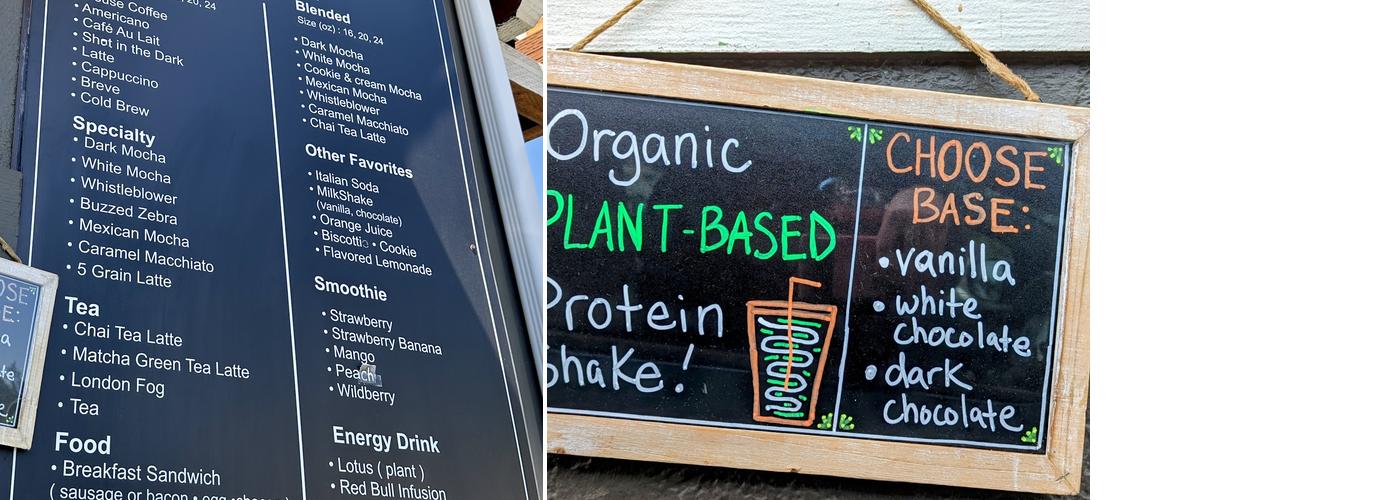 20, 24
House Coffee
• Americano
• Café Au Lait
• Shot in the Dark
Latte
• Cappuccino
• Breve
• Cold Brew
Specialty
• Dark Mocha
• White Mocha
• Whistleblower
• Buzzed Zebra
• Mexican Mocha
• Caramel Macchiato
• 5 Grain Latte
Tea
• Chai Tea Latte
• Matcha Green Tea Latte
• London Fog
• Tea
Food
• Breakfast Sandwich
( sausage or bacon • egg
Blended
Size (oz) : 16, 20, 24
• Dark Mocha
• White Mocha
• Cookie & cream Mocha
• Mexican Mocha
• Whistleblower
• Caramel Macchiato
• Chai Tea Latte
Other Favorites
• Italian Soda
• MilkShake
(vanilla, chocolate)
• Orange Juice
• Biscotti • Cookie
• Flavored Lemonade
Smoothie
• Strawberry
• Strawberry Banana
• Mango
• Peach
• Wildberry
Energy Drink
• Lotus ( plant )
• Red Bull Infusion
Organic
PLANT-BASED
Protein
Shake!
CHOOSE
BASE:
• vanilla
• white
chocolate
• dark
chocolate